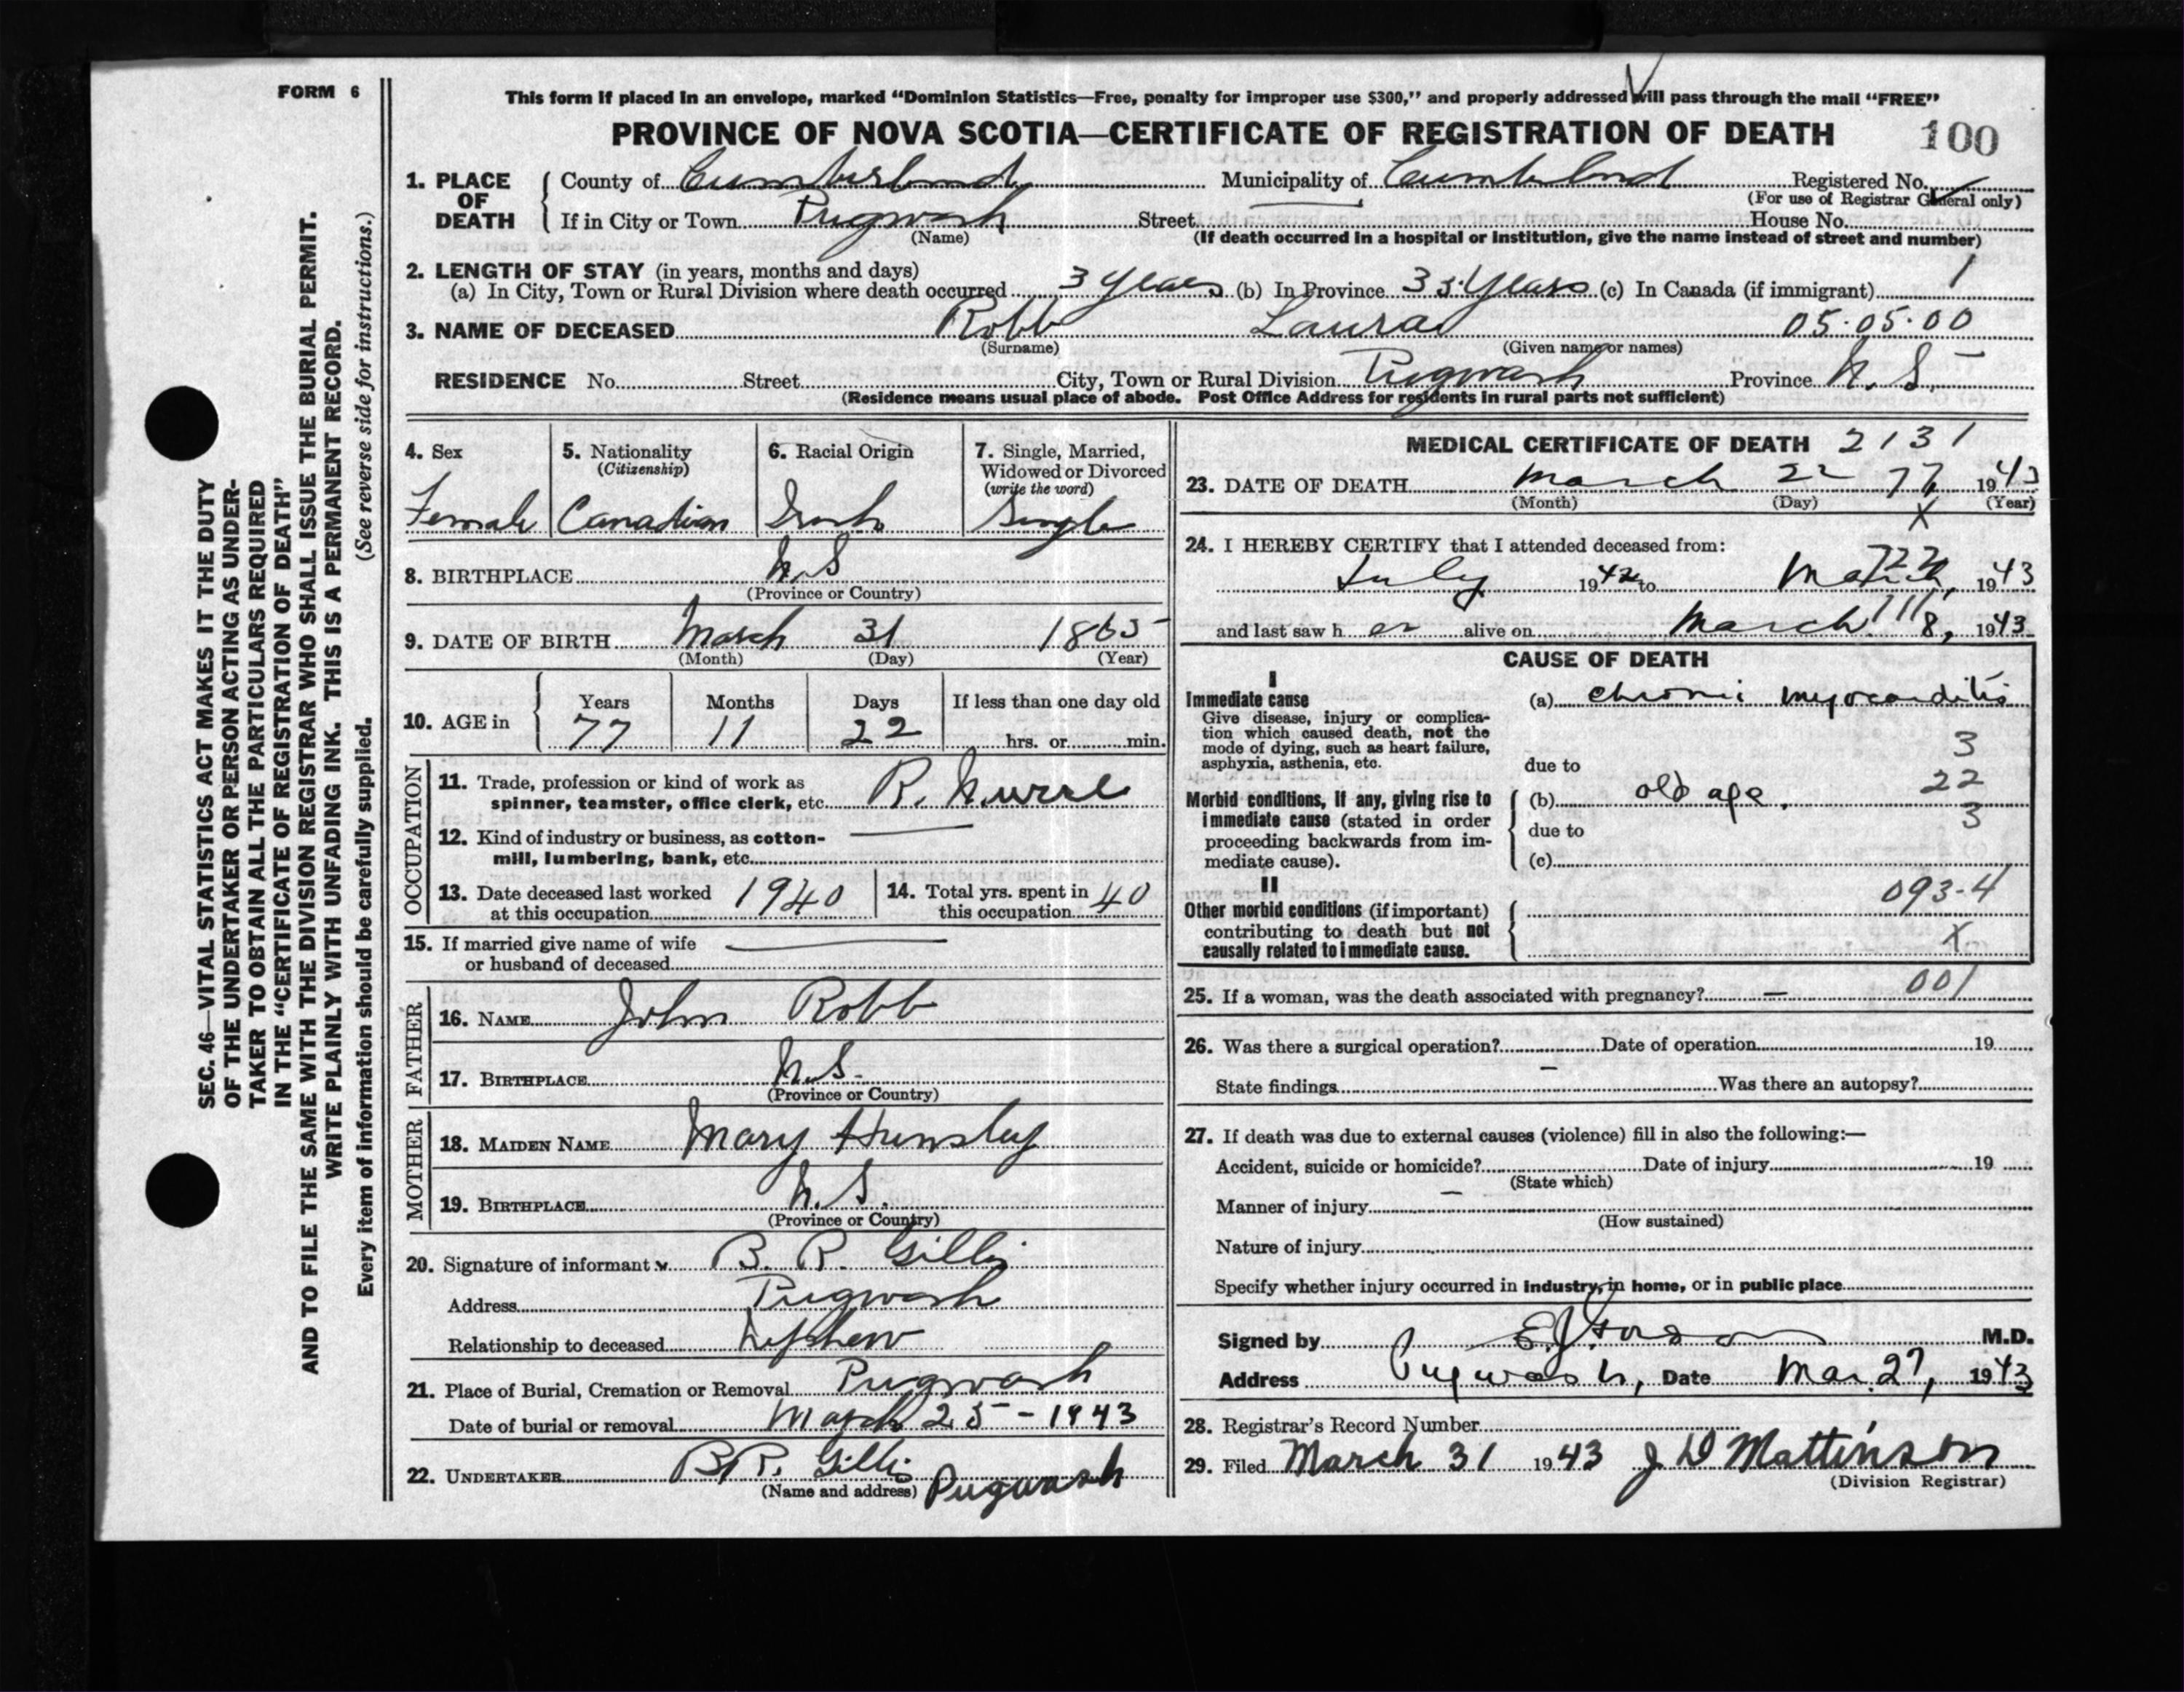 FORM 6
This form if placed in an envelope, marked “Dominion Statistics—Free, penalty for improper use $300,” and properly addressed will pass through the mail “FREE”
PROVINCE OF NOVA SCOTIA—CERTIFICATE OF REGISTRATION OF DEATH 100
1. PLACE OF DEATH County of Cumberland Municipality of Cumberland Registered No.
(For use of Registrar General only)
If in City or Town Pugwash Street House No.
(Name) (If death occurred in a hospital or institution, give the name instead of street and number)
2. LENGTH OF STAY (in years, months and days) 1
(a) In City, Town or Rural Division where death occurred 3 years (b) In Province 35 years (c) In Canada (if immigrant)
3. NAME OF DECEASED Robb Laura 05·05·00
(Surname) (Given name or names)
RESIDENCE No. Street City, Town or Rural Division Pugwash Province N.S.
(Residence means usual place of abode. Post Office Address for residents in rural parts not sufficient)
4. Sex
Female
5. Nationality
(Citizenship)
Canadian
6. Racial Origin
7. Single, Married,
Widowed or Divorced
(write the word)
Single
8. BIRTHPLACE N.S
(Province or Country)
9. DATE OF BIRTH March 31 1865
(Month) (Day) (Year)
10. AGE in Years Months Days If less than one day old
77 11 22 hrs. or min.
OCCUPATION
11. Trade, profession or kind of work as
spinner, teamster, office clerk, etc. R. Nurse
12. Kind of industry or business, as cotton-
mill, lumbering, bank, etc.
13. Date deceased last worked
at this occupation 1940
14. Total yrs. spent in
this occupation 40
15. If married give name of wife
or husband of deceased
FATHER
16. NAME John Robb
17. BIRTHPLACE N.S.
(Province or Country)
MOTHER
18. MAIDEN NAME Mary Hunsley
19. BIRTHPLACE N.S.
(Province or Country)
20. Signature of informant B. R. Gillis
Address Pugwash
Relationship to deceased Nephew
21. Place of Burial, Cremation or Removal Pugwash
Date of burial or removal March 25 - 1943
22. UNDERTAKER B.R. Gillis Pugwash
(Name and address)
MEDICAL CERTIFICATE OF DEATH 2131
23. DATE OF DEATH March 22 77 1943
(Month) (Day) (Year)
X
24. I HEREBY CERTIFY that I attended deceased from:
July 1942 to March 1943
and last saw her alive on March 18, 1943
CAUSE OF DEATH
I
Immediate cause
Give disease, injury or complica-
tion which caused death, not the
mode of dying, such as heart failure,
asphyxia, asthenia, etc.
(a) chronic myocarditis
3
due to
Morbid conditions, if any, giving rise to
immediate cause (stated in order
proceeding backwards from im-
mediate cause).
(b) old age. 22
due to 3
(c)
II 093-4
Other morbid conditions (if important)
contributing to death but not
causally related to immediate cause.
X
25. If a woman, was the death associated with pregnancy? — 001
26. Was there a surgical operation? Date of operation 19
State findings — Was there an autopsy?
27. If death was due to external causes (violence) fill in also the following:—
Accident, suicide or homicide? Date of injury 19
(State which)
Manner of injury —
(How sustained)
Nature of injury
Specify whether injury occurred in industry, in home, or in public place
Signed by M.D.
Address Pugwash, Date Mar. 27, 1943
28. Registrar's Record Number
29. Filed March 31 1943 J D Mattinson
(Division Registrar)
SEC. 46—VITAL STATISTICS ACT MAKES IT THE DUTY
OF THE UNDERTAKER OR PERSON ACTING AS UNDER-
TAKER TO OBTAIN ALL THE PARTICULARS REQUIRED
IN THE “CERTIFICATE OF REGISTRATION OF DEATH”
AND TO FILE THE SAME WITH THE DIVISION REGISTRAR WHO SHALL ISSUE THE BURIAL PERMIT.
WRITE PLAINLY WITH UNFADING INK. THIS IS A PERMANENT RECORD.
Every item of information should be carefully supplied. (See reverse side for instructions.)